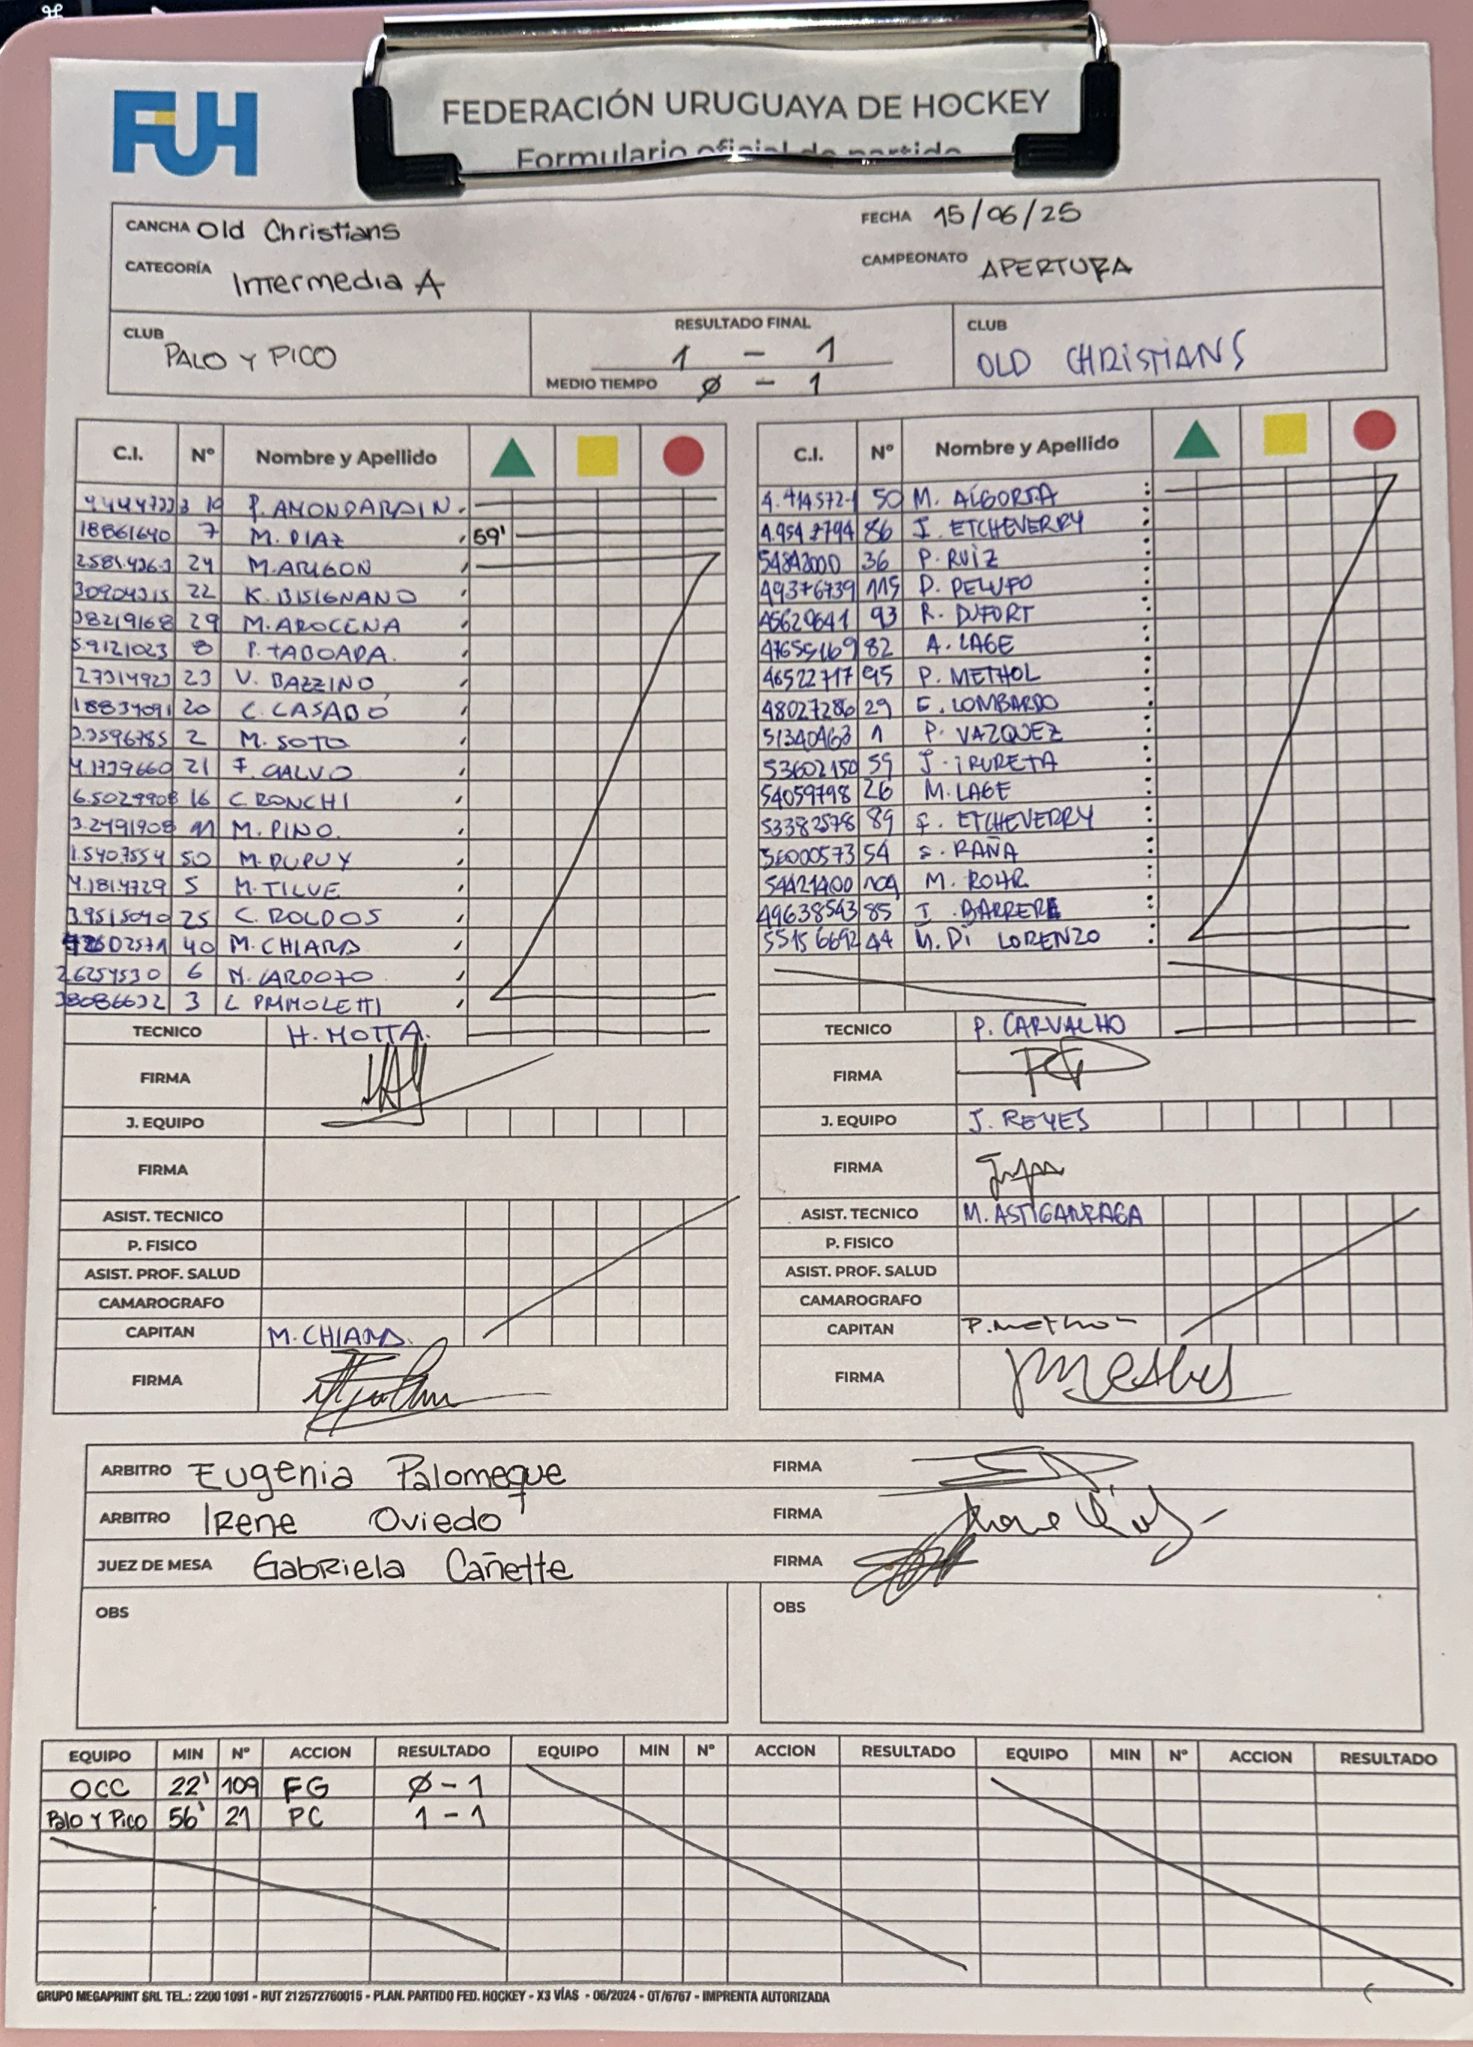 FUH
FEDERACIÓN URUGUAYA DE HOCKEY
Formulario oficial de partido
CANCHA Old Christians FECHA 15/06/25
CATEGORÍA Intermedia A CAMPEONATO APERTURA
CLUB PALO Y PICO RESULTADO FINAL 1 - 1 CLUB OLD CHRISTIANS
MEDIO TIEMPO Ø - 1
C.I. Nº Nombre y Apellido C.I. Nº Nombre y Apellido
P. AMONDARAIN 50 M. ALGORTA
18861640 7 M. DIAZ 59' 86 J. ETCHEVERRY
24 M. ARIGON 54842000 36 P. RUIZ
30904315 22 K. BISIGNANO 49376739 115 D. PELUFO
38219168 29 M. AROCENA 45629641 93 R. DUFORT
5.9121023 8 P. TABOADA. 47655169 82 A. LAGE
2.7314923 23 V. BAZZINO 46522717 95 P. METHOL
18834091 20 C. CASABO 48027286 29 E. LOMBARDO
3.3596785 2 M. SOTO 51340463 1 P. VAZQUEZ
4.1739660 21 F. GALVO 53602150 59 J. IRURETA
6.5029908 16 C. RONCHI 54059798 26 M. LAGE
3.2491908 11 M. PINO. 53382578 89 F. ETCHEVERRY
1.5407554 50 M. DUPUY 56000573 54 S. RAÑA
4.1814729 5 M. TILVE 54421400 109 M. ROHR
3.9515040 25 C. ROLDOS 49638543 85 I. BARRERE
40 M. CHIARA 55156692 44 M. DI LORENZO
2.6254530 6 N. CARDOZO
38086632 3 L PRIMOLETTI
TECNICO H. MOTTA. TECNICO P. CARVALHO
FIRMA FIRMA
J. EQUIPO J. EQUIPO J. REYES
FIRMA FIRMA
ASIST. TECNICO ASIST. TECNICO M. ASTIGARRAGA
P. FISICO P. FISICO
ASIST. PROF. SALUD ASIST. PROF. SALUD
CAMAROGRAFO CAMAROGRAFO
CAPITAN M. CHIARA. CAPITAN P. Methol
FIRMA FIRMA
ARBITRO Eugenia Palomeque FIRMA
ARBITRO Irene Oviedo FIRMA
JUEZ DE MESA Gabriela Cañette FIRMA
OBS OBS
EQUIPO MIN Nº ACCION RESULTADO EQUIPO MIN Nº ACCION RESULTADO EQUIPO MIN Nº ACCION RESULTADO
OCC 22' 109 FG Ø - 1
Palo Y Pico 56' 21 PC 1 - 1
GRUPO MEGAPRINT SRL TEL.: 2200 1091 - RUT 212572760015 - PLAN. PARTIDO FED. HOCKEY - X3 VÍAS - 06/2024 - OT/6767 - IMPRENTA AUTORIZADA